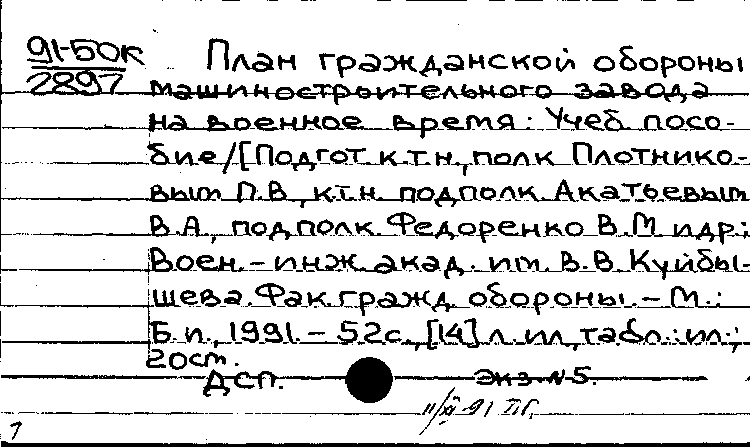 91-БОК План гражданской обороны
2897 машиностроительного завода
на военное время: Учеб. посо-
бие/[Подгот. к.т.н., полк. Плотнико-
вым П.В., к.т.н. подполк. Акатьевым
В.А., подполк. Федоренко В.М. и др.;
Воен.-инж. акад. им. В.В. Куйбы-
шева. Фак. гражд. обороны. - М.:
Б.и., 1991. - 52с., [14] л. ил., табл.: ил.;
20см.
ДСП. Экз. N5.
11/XI-91
1